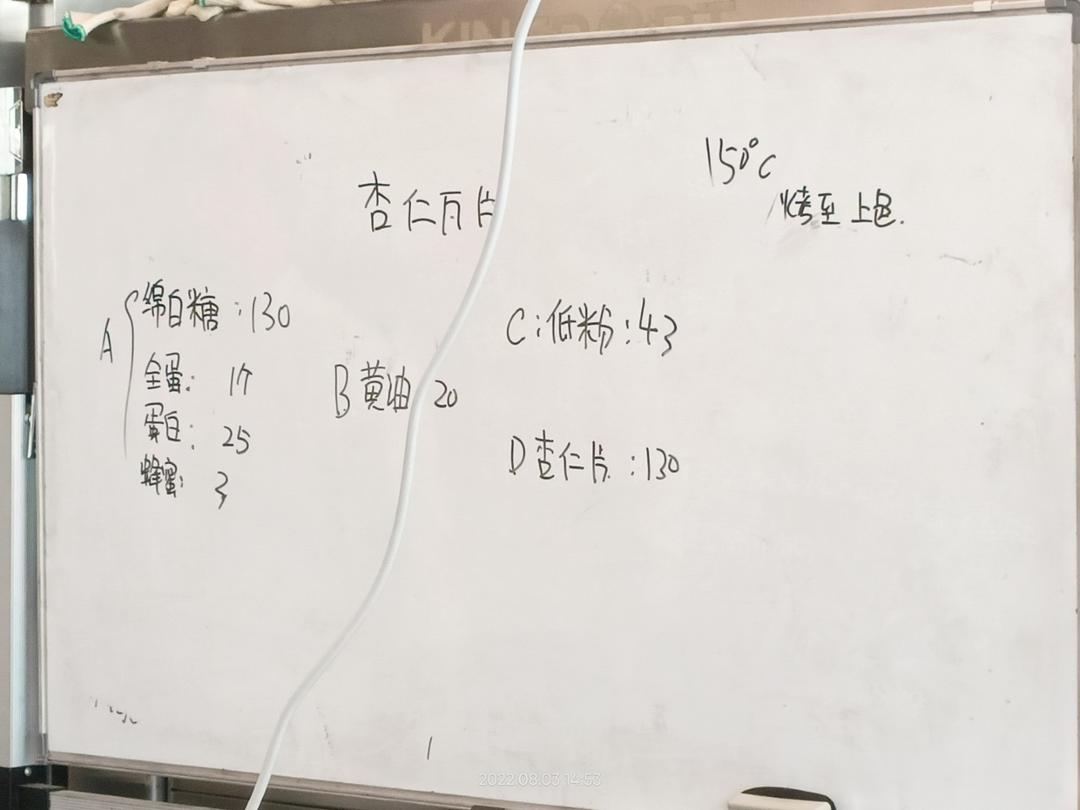 杏仁瓦片
150°C
烤至上色.
A
绵白糖:130
全蛋: 17
蛋白: 25
蜂蜜: 3
B 黄油 20
C:低粉:43
D 杏仁片:130
2022.08.03 14:53